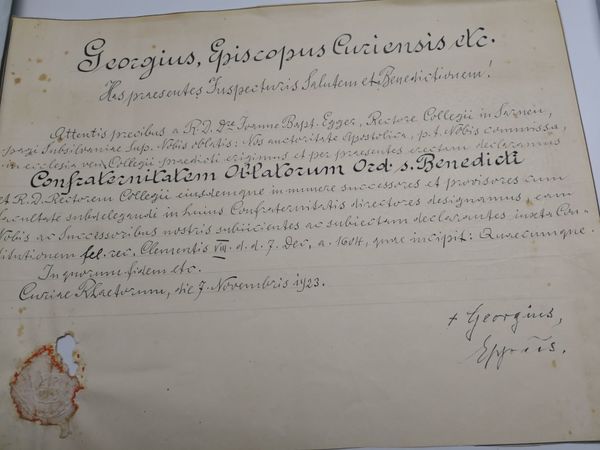 Georgius, Episcopus Curiensis etc.
Has praesentes Inspecturis Salutem et Benedictionem!
Attentis precibus a R. D. Dre Joanne Bapt. Egger, Rectore Collegii in Sarnen,
pagi Subsilvaniae Sup. Nobis oblatis: Nos auctoritate Apostolica, p. t. Nobis commissa,
in ecclesia Collegii praedicti erigimus et per praesentes erectam declaramus
Confraternitatem Oblatorum Ord. s. Benedicti
et R. D. Rectorem Collegii eiusdemque in munere successores et provisores cum
facultate subdelegandi in huius Confraternitatis directores designamus, eam
Nobis ac Successoribus nostris subiicientes ac subiectam declarantes, iuxta Con-
titutionem fel. rec. Clementis VIII. d. d. 7. Dec. a. 1604, quae incipit: Quaecumque.
In quorum fidem etc.
Curiae Rhaetorum, die 7. Novembris 1923.
+ Georgius,
Eppūs.